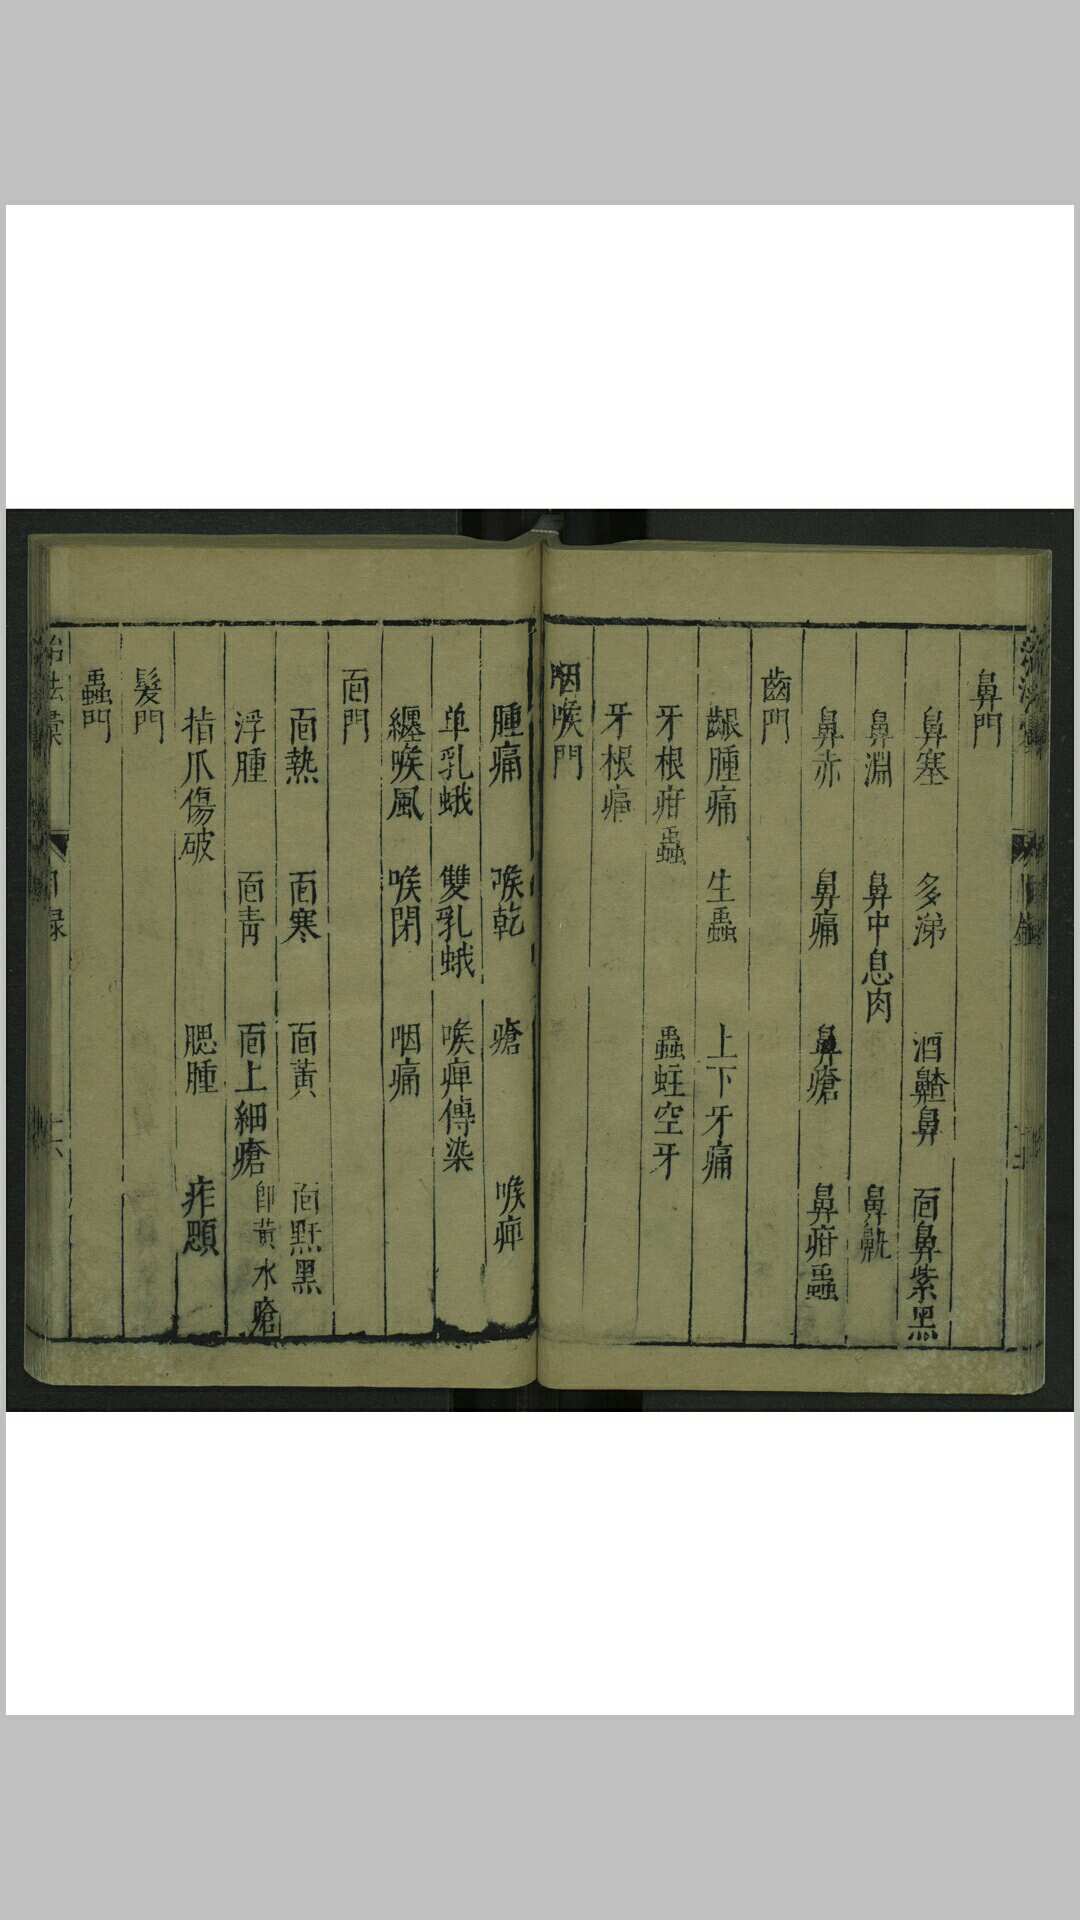 鼻門
鼻塞 多涕 酒齇鼻 面鼻紫黑
鼻淵 鼻中息肉 鼻鼽
鼻赤 鼻痛 鼻瘡 鼻疳䘌
齒門
齦腫痛 生蟲 上下牙痛
牙根疳䘌 蟲蛀空牙
牙根痛
咽喉門
腫痛 喉乾 瘡 喉痺
单乳蛾 雙乳蛾 喉痺傳染
纏喉風 喉閉 咽痛
面門
面熱 面寒 面黃 面䵟黑
浮腫 面青 面上細瘡 卽黃水瘡
指爪傷破 腮腫 痄䫴
髮門
蟲門
治法彙 目錄 十六